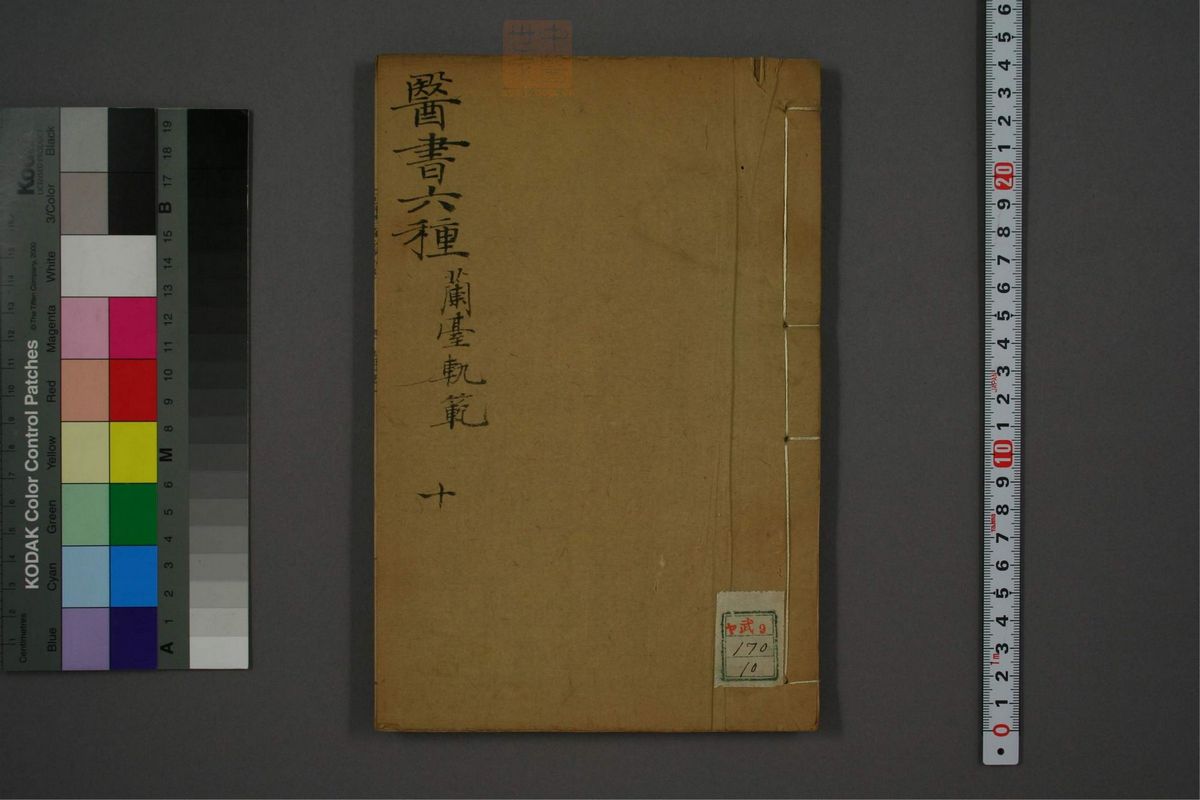 醫書六種
蘭臺軌範
十
武 9
170
10
KODAK Color Control Patches
© The Tiffen Company, 2000
Kodak
Centimetres
Blue
Cyan
Green
Yellow
Red
Magenta
White
3/Color
Black
A 1 2 3 4 5 6 M 8 9 10 11 12 13 14 15 B 17 18 19
6
5
4
3
2
1
20
9
8
7
6
5
4
3
2
1
10
9
8
7
6
5
4
3
2
1
0
1m